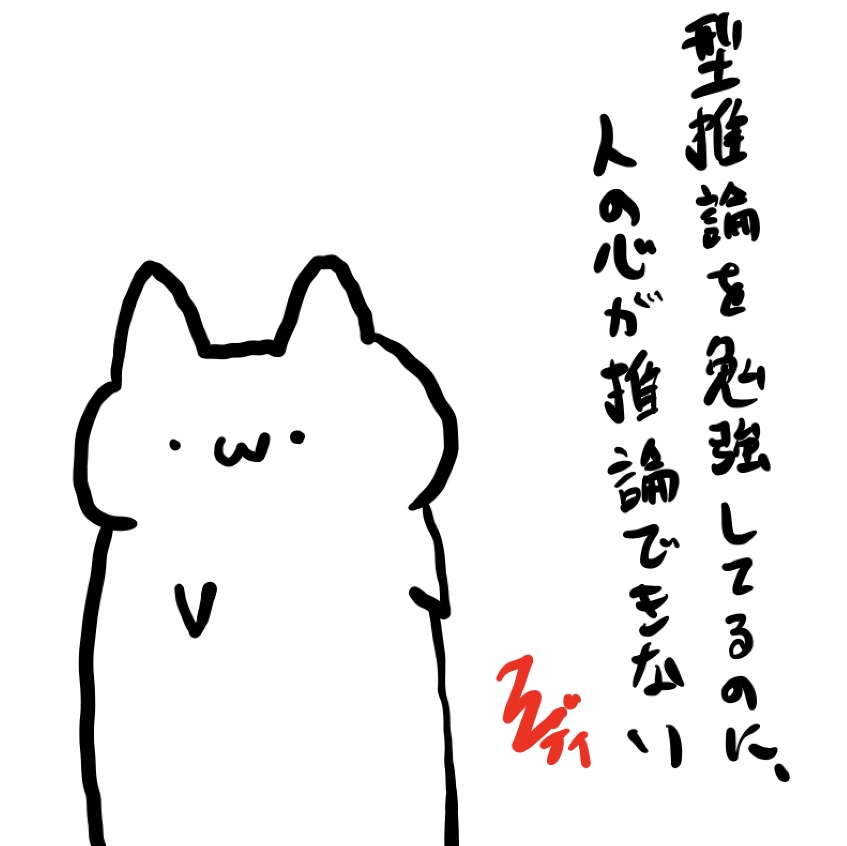 型推論を勉強してるのに、
人の心が推論できない